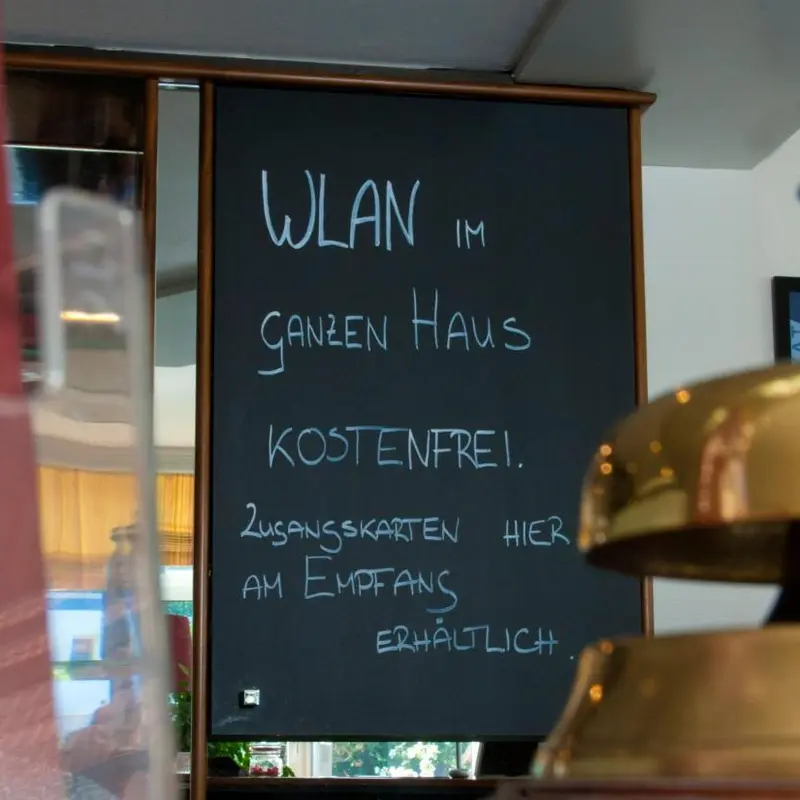 WLAN IM
GANZEN HAUS
KOSTENFREI.
ZUGANGSKARTEN HIER
AM EMPFANG
ERHÄLTLICH.